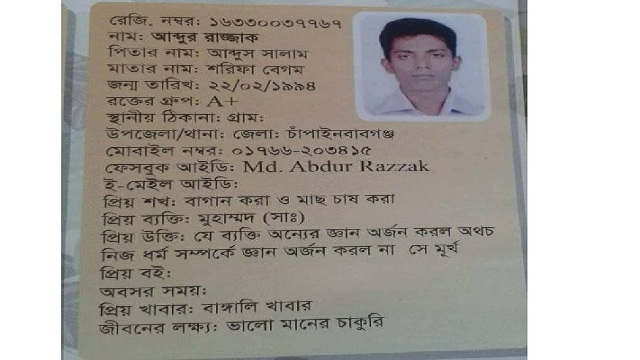 রেজি. নম্বর: ১৬৩৩০০৩৭৭৬৭
নাম: আব্দুর রাজ্জাক
পিতার নাম: আব্দুস সালাম
মাতার নাম: শরিফা বেগম
জন্ম তারিখ: ২২/০২/১৯৯৪
রক্তের গ্রুপ: A+
স্থানীয় ঠিকানা: গ্রাম:
উপজেলা/থানা: জেলা: চাঁপাইনবাবগঞ্জ
মোবাইল নম্বর: ০১৭৬৬-২০৩৪১৫
ফেসবুক আইডি: Md. Abdur Razzak
ই-মেইল আইডি:
প্রিয় শখ: বাগান করা ও মাছ চাষ করা
প্রিয় ব্যক্তি: মুহাম্মদ (সাঃ)
প্রিয় উক্তি: যে ব্যক্তি অন্যের জ্ঞান অর্জন করল অথচ
নিজ ধর্ম সম্পর্কে জ্ঞান অর্জন করল না সে মূর্খ
প্রিয় বই:
অবসর সময়:
প্রিয় খাবার: বাঙ্গালি খাবার
জীবনের লক্ষ্য: ভালো মানের চাকুরি